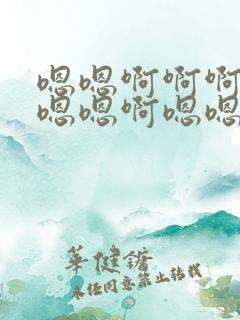 嗯嗯啊啊啊
嗯嗯啊嗯嗯
华健镛
未经同意禁止转载